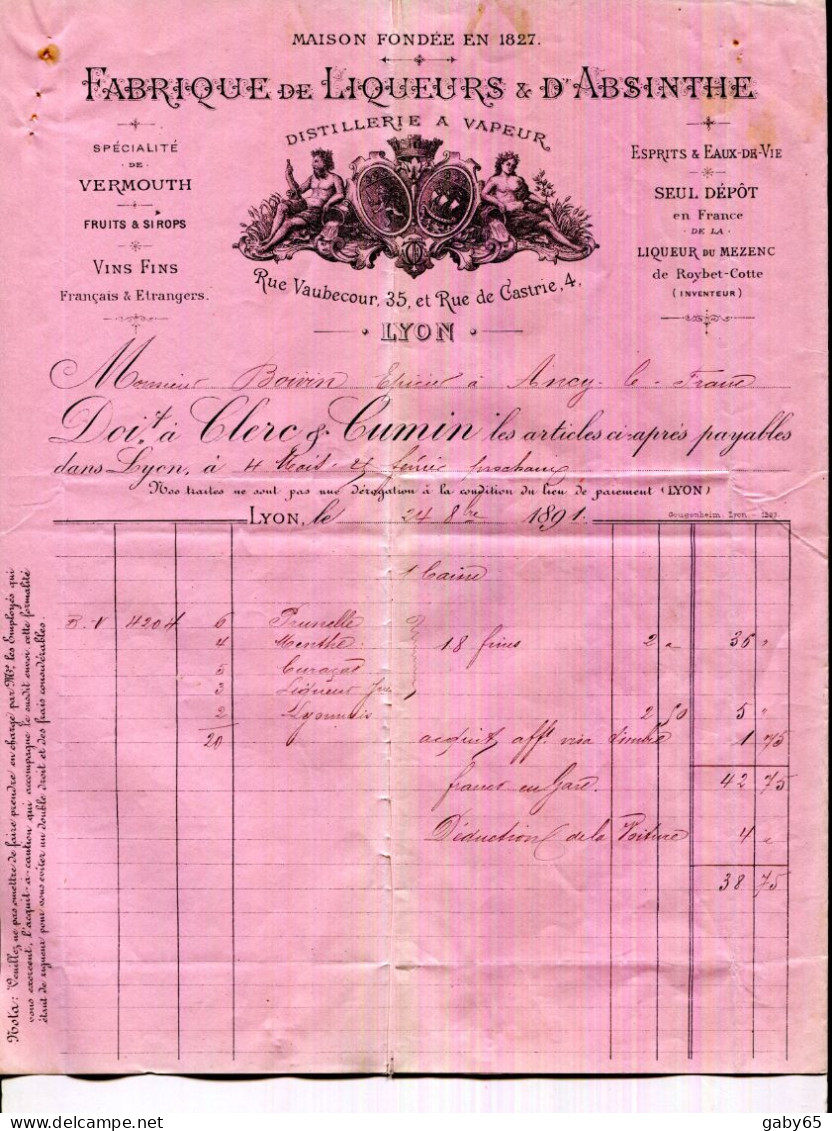 MAISON FONDÉE EN 1827.
FABRIQUE DE LIQUEURS & D'ABSINTHE
DISTILLERIE A VAPEUR
SPÉCIALITÉ
DE
VERMOUTH
FRUITS & SIROPS
VINS FINS
Français & Etrangers.
ESPRITS & EAUX-DE-VIE
SEUL DÉPÔT
en France
DE LA
LIQUEUR DU MEZENC
de Roybet-Cotte
(INVENTEUR)
Rue Vaubecour, 35, et Rue de Castrie, 4,
LYON
Monsieur Boivin Epicier à Ancy-le-Franc
Doiv.t à Clerc & Cumin les articles ci-après payables
dans Lyon, à 4 Mois février prochain
Nos traites ne sont pas une dérogation à la condition du lieu de paiement (LYON)
LYON, le 24 8bre 1891.
Gougenheim. Lyon.
1 Caisse
B.-V 4204 6 Prunelle
4 Menthe 18 fines 2 " 36 "
5 Curaçao
3 Liqueur
2 Lyonnais 2 50 5 "
20 acquit, afft. visa timbre 1 75
franco en Gare. 42 75
Déduction de la Voiture 4 "
38 75
Nota: Veuillez ne pas omettre de faire prendre en charge par MM. les Employés qui
vous exercent, l'acquit-à-caution qui accompagne le susdit envoi cette formalité
étant de rigueur pour vous éviter un double droit et des frais considérables.
gaby65